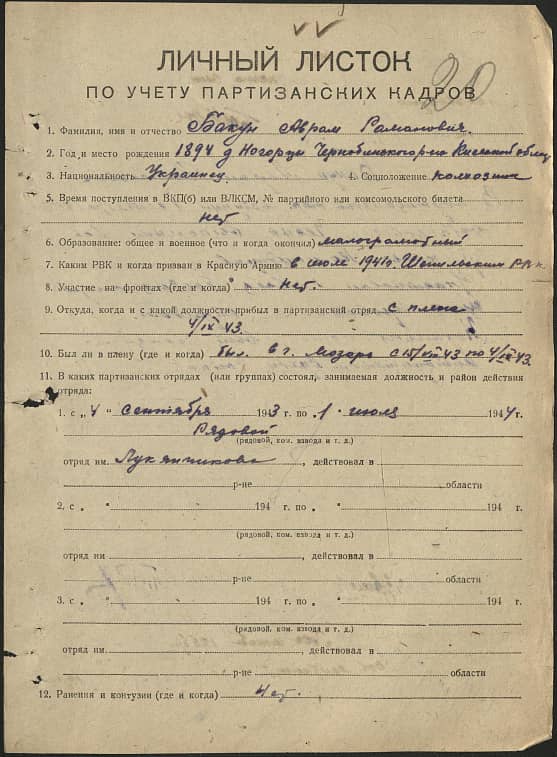 20
ЛИЧНЫЙ ЛИСТОК
ПО УЧЕТУ ПАРТИЗАНСКИХ КАДРОВ
1. Фамилия, имя и отчество Бакун Аврам Рамонович.
2. Год и место рождения 1894 д Ногорцы Чернобинского р-на Киевской облас
3. Национальность Украинец 4. Соцположение колхозник
5. Время поступления в ВКП(б) или ВЛКСМ, № партийного или комсомольского билета
нет
6. Образование: общее и военное (что и когда окончил) малограмотный
7. Каким РВК и когда призван в Красную Армию в июле 1941 г. РВК
8. Участие на фронтах (где и когда) нет.
9. Откуда, когда и с какой должности прибыл в партизанский отряд с плена
4/IX 43.
10. Был ли в плену (где и когда) был. в г. Мозарь с 15/VIII 43 по 4/IX 43.
11. В каких партизанских отрядах (или группах) состоял, занимаемая должность и район действия
отряда:
1. с „4 “ сентября 1943 г. по „1 “ июля 1944 г.
Рядовой
(рядовой, ком. взвода и т. д.)
отряд им. Лукянчикова , действовал в
р-не области
2. с „ “ 194 г. по „ “ 194 г.
(рядовой, ком. взвода и т. д.)
отряд ни , действовал в
р-не области
3. с „ “ 194 г. по „ “ 194 г.
(рядовой, ком. взвода и т. д.)
отряд им. , действовал в
р-не области
12. Ранения и контузии (где и когда) Нет.